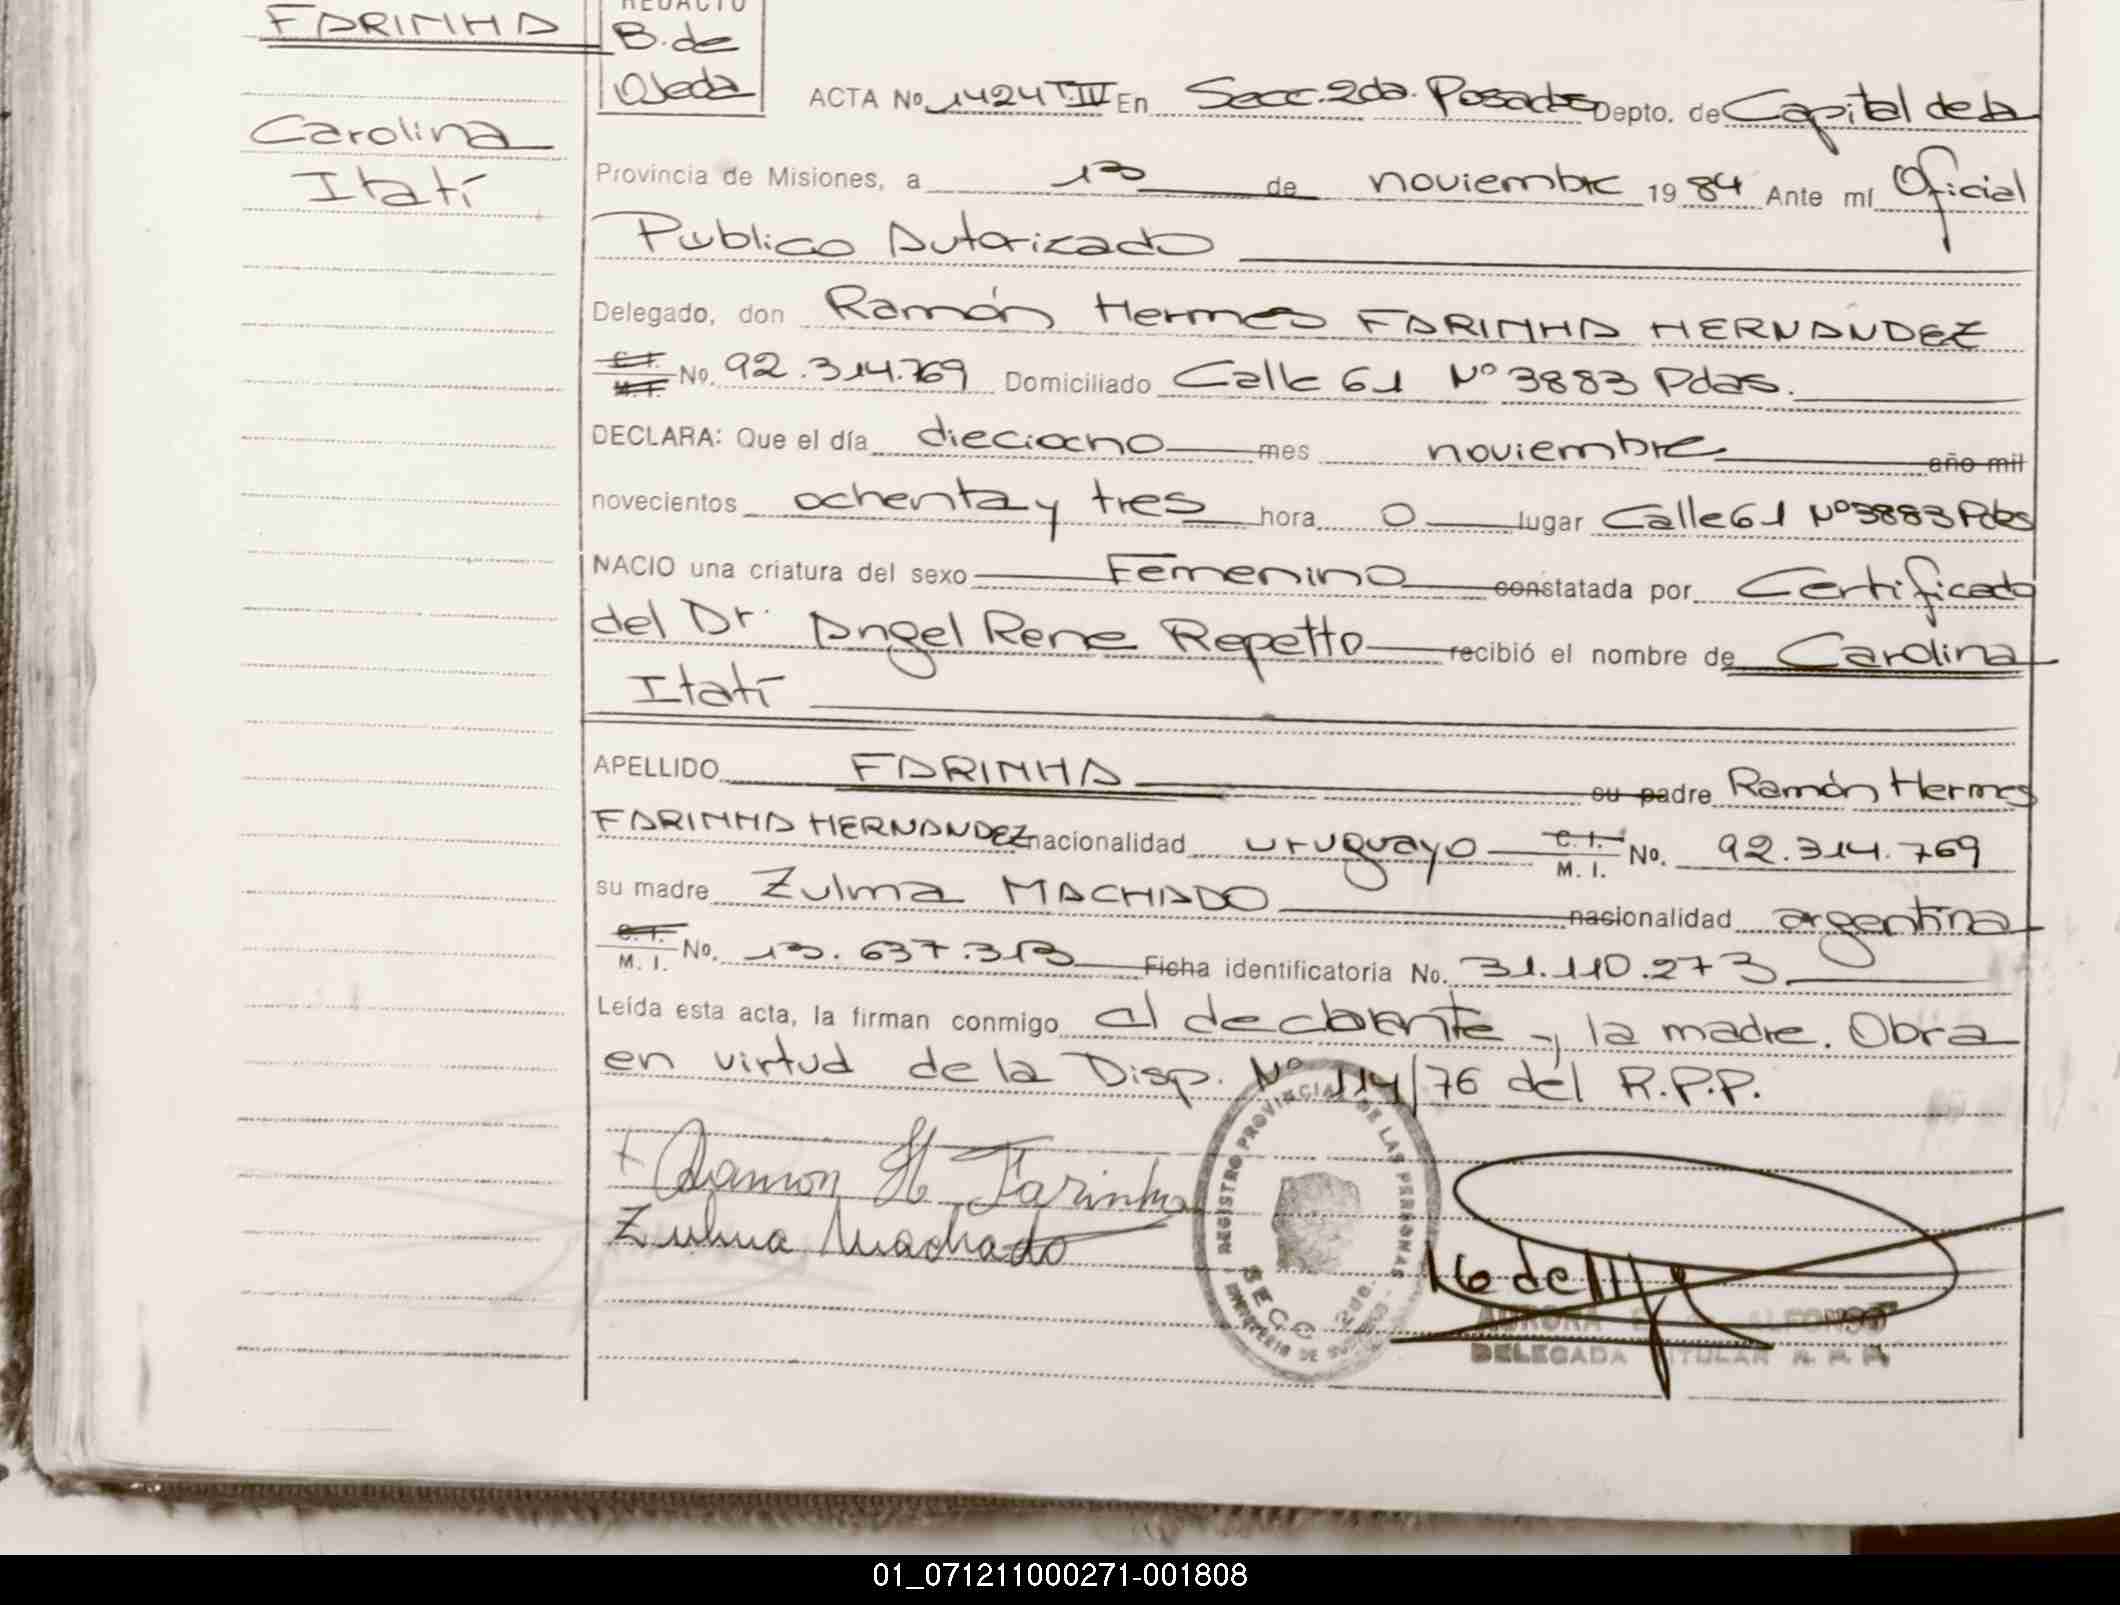 FARINHA
Carolina
Itatí
REDACTO
B. de
Ojeda
ACTA No 1424 T.IV En Secc. 2da. Posadas Depto. de Capital de la
Provincia de Misiones, a 13 de noviembre 1984 Ante mí Oficial
Publico Autorizado
Delegado, don Ramón Hermes FARINHA HERNANDEZ
C. I. M. I. No. 92.314.769 Domiciliado Calle 61 Nº 3883 Pdas.
DECLARA: Que el día dieciocho mes noviembre año mil
novecientos ochenta y tres hora 0 lugar Calle 61 Nº 3883 Pdas
NACIO una criatura del sexo Femenino constatada por Certificado
del Dr. Angel Rene Repetto recibió el nombre de Carolina
Itatí
APELLIDO FARINHA su padre Ramón Hermes
FARINHA HERNANDEZ nacionalidad uruguayo C. I. M. I. No. 92.314.769
su madre Zulma MACHADO nacionalidad argentina
C. I. M. I. No. 13.637.313 Ficha identificatoria No. 31.110.273
Leída esta acta, la firman conmigo el declarante y la madre. Obra
en virtud de la Disp. Nº 114/76 del R.P.P.
+ Ramon H Farinha
Zulma Machado
REGISTRO PROVINCIAL DE LAS PERSONAS
SECC 2da.
AURORA ALFONSO
DELEGADA TITULAR R. P. P.
01_071211000271-001808